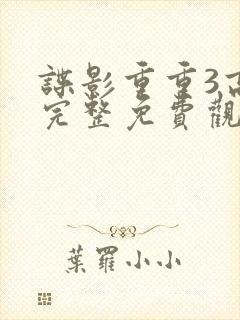 諜影重重3高
完整免費觀
葉羅小小